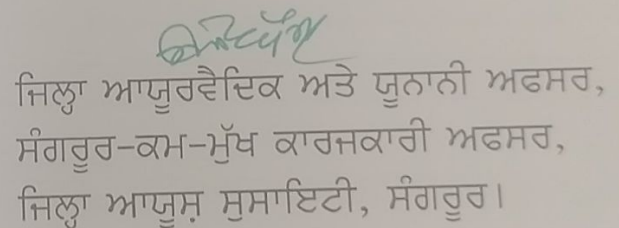 ਜਿਲ੍ਹਾ ਆਯੂਰਵੈਦਿਕ ਅਤੇ ਯੂਨਾਨੀ ਅਫਸਰ,
ਸੰਗਰੂਰ-ਕਮ-ਮੁੱਖ ਕਾਰਜਕਾਰੀ ਅਫਸਰ,
ਜਿਲ੍ਹਾ ਆਯੂਸ਼ ਸੁਸਾਇਟੀ, ਸੰਗਰੂਰ।